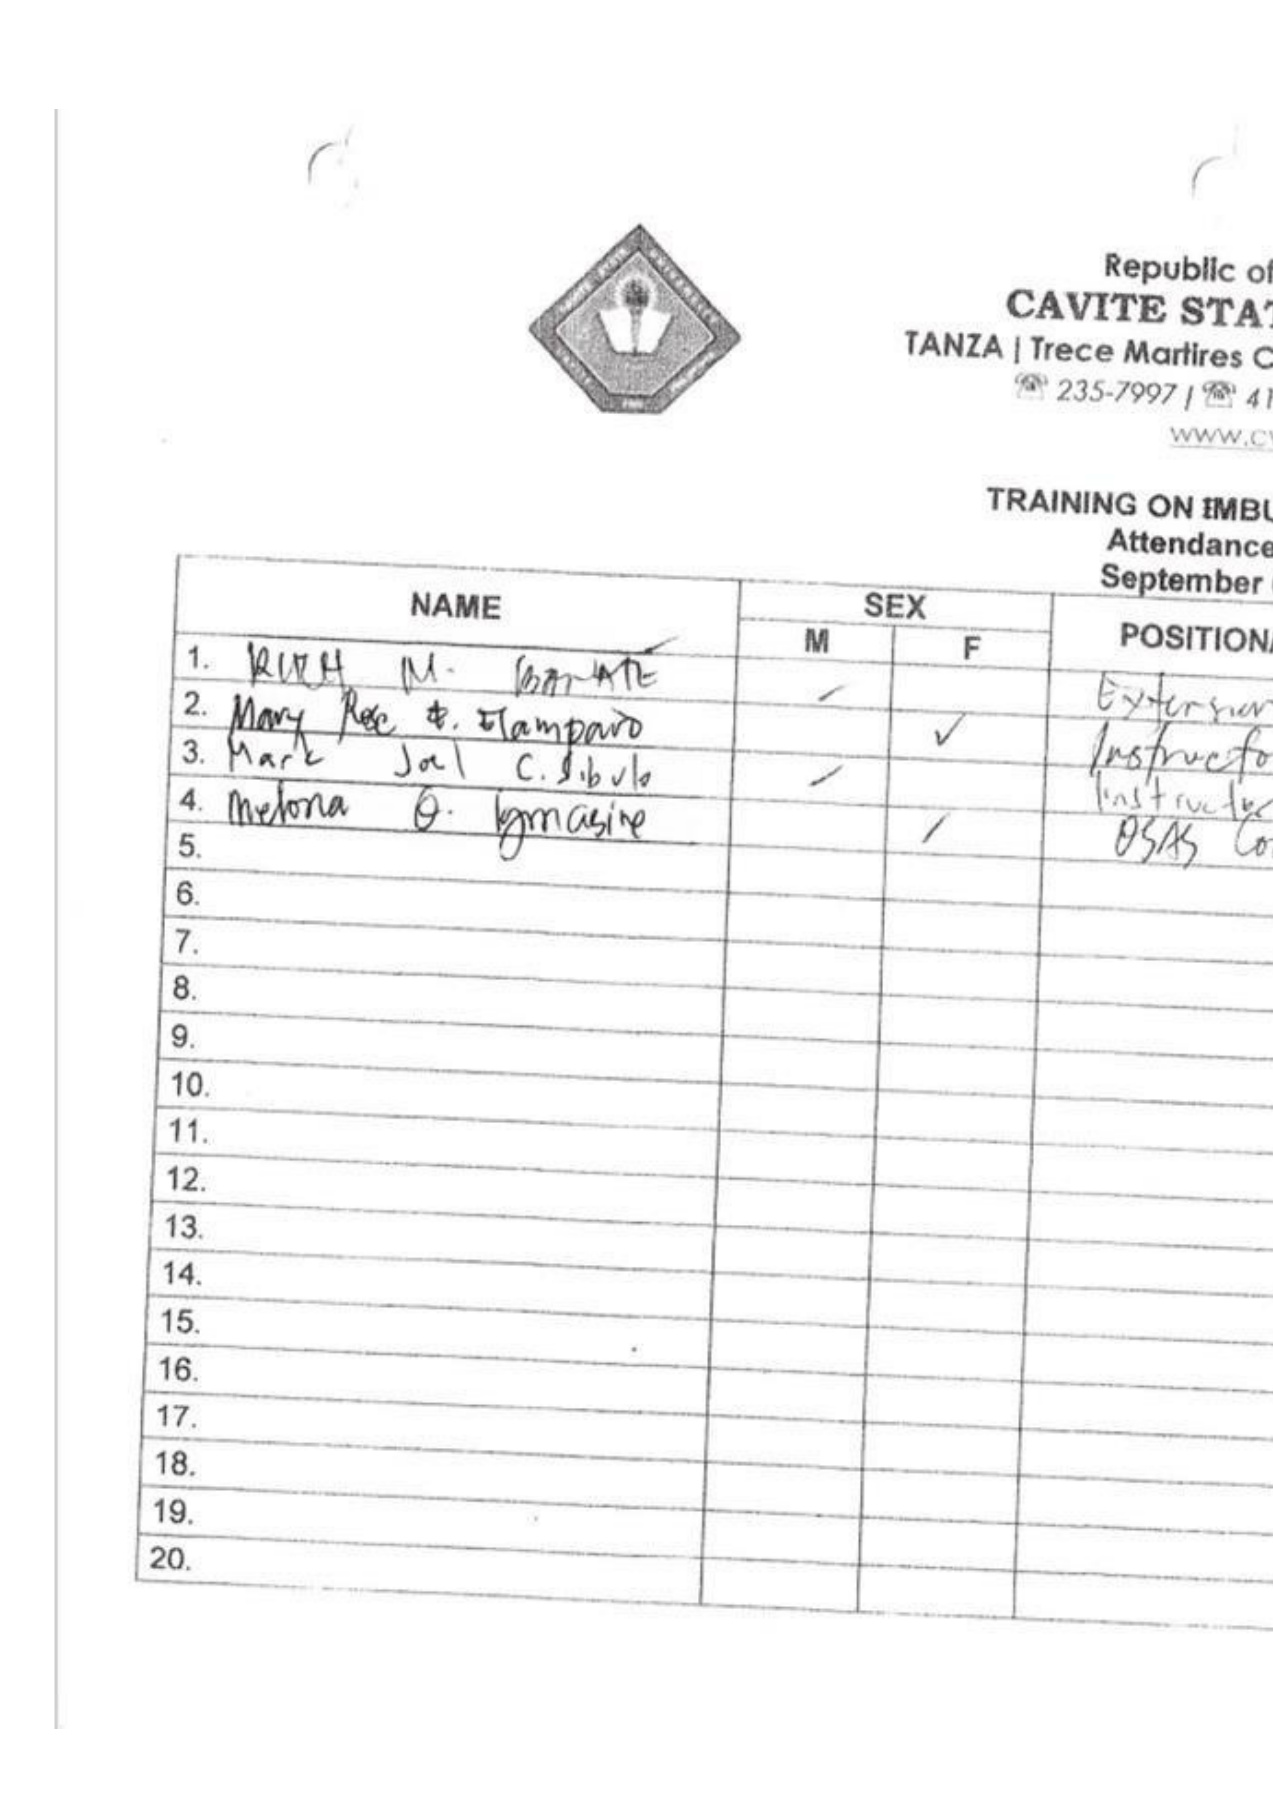 Republic of
CAVITE STAT
TANZA | Trece Martires C
☎ 235-7997 / ☎ 41
www.cv
TRAINING ON IMBU
Attendance
September
NAME SEX POSITION/
M F
1. M. Extension
2. Mary Rose Elamparo ✓ Instructo
3. Mark Joel C. Sibulo / Instructor
4. O. / OSAS Co
5.
6.
7.
8.
9.
10.
11.
12.
13.
14.
15.
16.
17.
18.
19.
20.